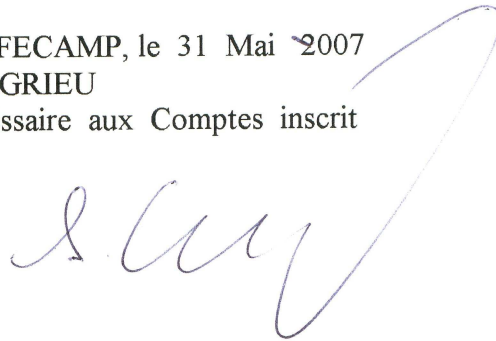 FECAMP, le 31 Mai 2007
GRIEU
ssaire aux Comptes inscrit